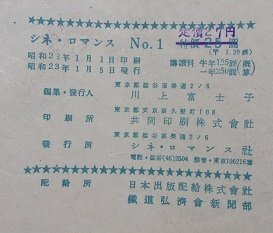 シネ・ロマンス No.1
定價27円
特價25圓
(〒1.20殘)
昭和23年1月1日印刷
昭和23年1月5日發行
購讀料 半年125圓(概
一年250圓(算)
東京都澁谷區榮通2ノ6
編集・發行人 川上富士子
東京都文京區久堅町108
印刷所 共同印刷株式會社
東京都澁谷區榮通2ノ6
發行所 シネ・ロマンス社
電話・澁谷(46)2504 振替・東京196216番
配給所 日本出版配給株式會社
鐵道弘濟會新聞部